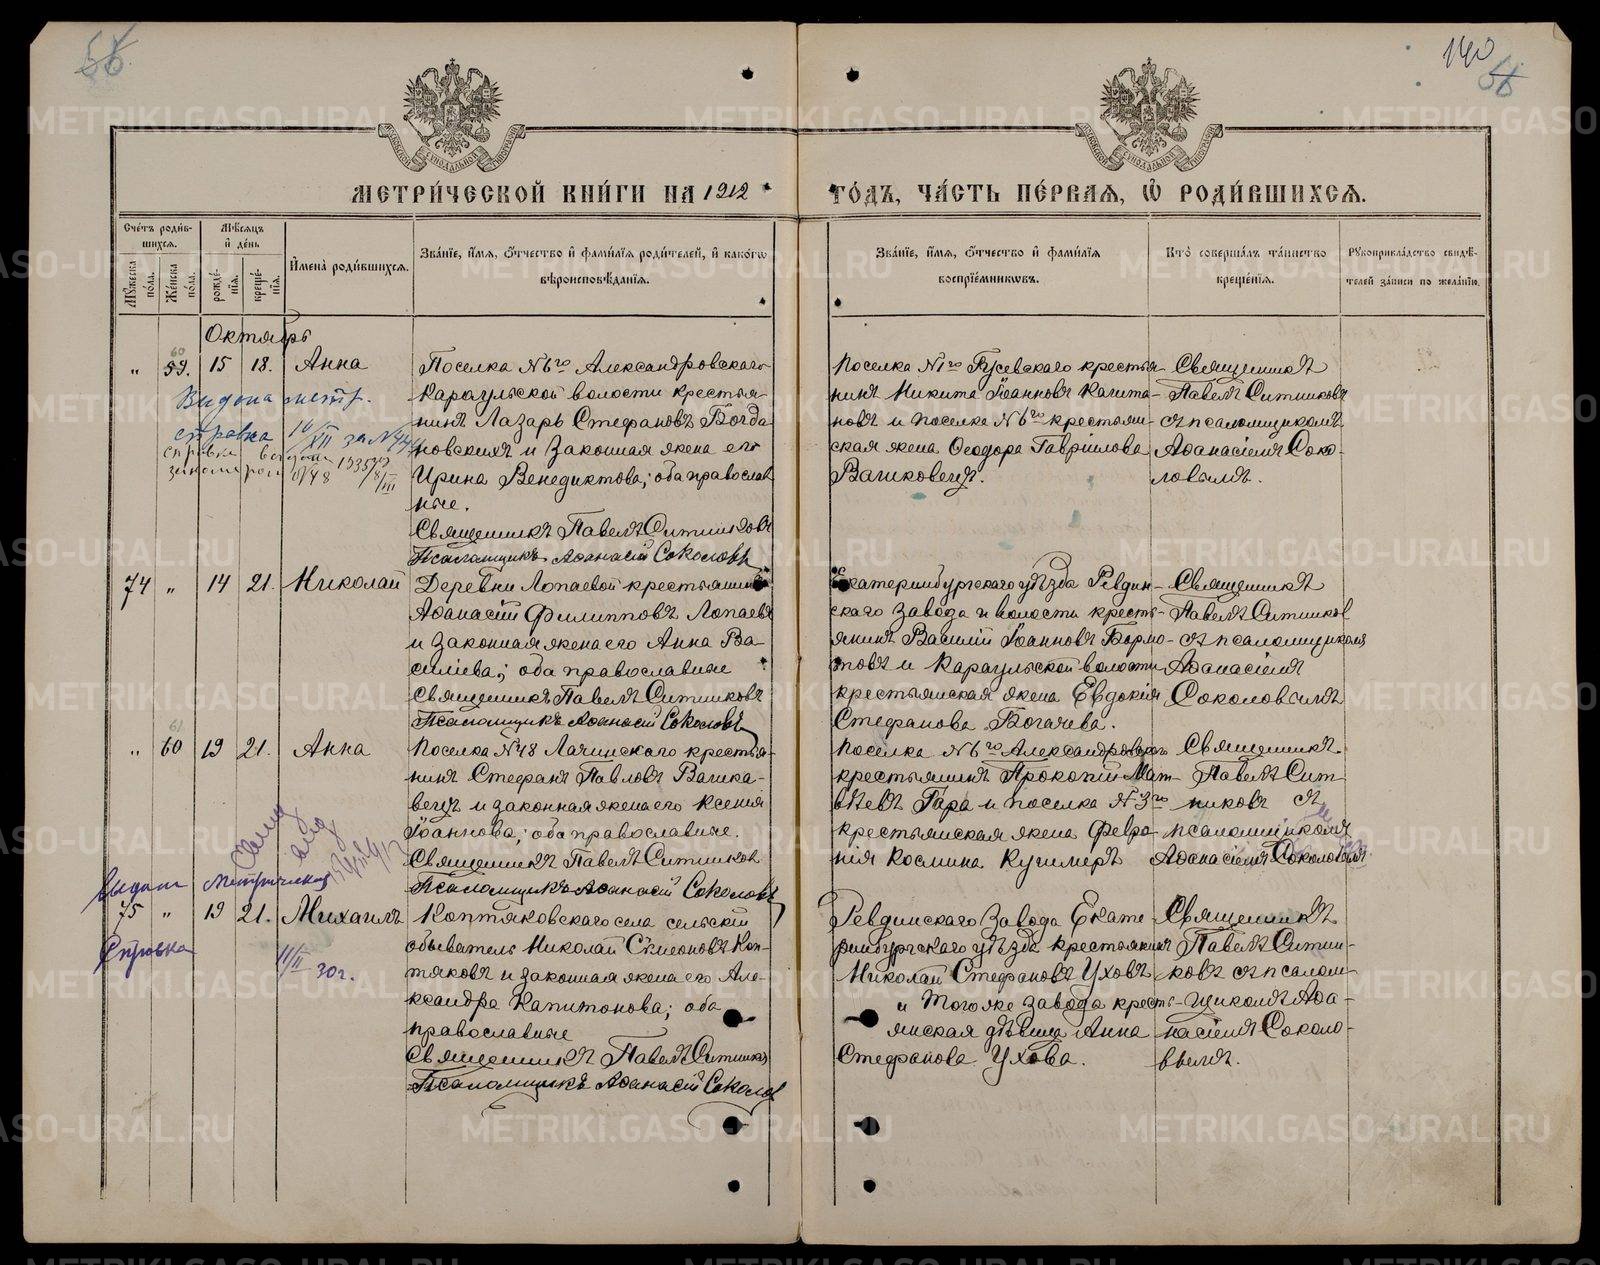 140
МЕТРИ́ЧЕСКОЙ КНИ́ГИ НА 1912
ГО́ДЪ, ЧА́СТЬ ПЕ́РВАЯ, Ѡ҆ РОДИ́ВШИХСѦ.
Сче́тъ роди́в-
шихсѧ.
Мѣ́сѧцъ
и҆ де́нь
Му́жеска по́ла.
Же́нска по́ла.
рожде́-
нїѧ.
креще́-
нїѧ.
И҆мена̀ роди́вшихсѧ.
Зва́нїе, и҆́мѧ, ѻ҆́тчество и҆ фами́лїѧ роди́телей, и҆ како́гѡ
вѣроисповѣ́данїѧ.
Зва́нїе, и҆́мѧ, ѻ҆́тчество и҆ фами́лїѧ
воспрїе́мникѡвъ.
Кто̀ соверша́лъ та́инство
креще́нїѧ.
Рꙋкоприкла́дство свидѣ́-
телей за́писи по жела́нїю.
Октябрь
60
„ 59. 15 18. Анна
Поселка №6го Александровскаго
Карагульской волости крестья-
нинъ Лазарь Стефановъ Богда
новскихъ и законная жена его
Ирина Венедиктова; оба православ
ные.
Священникъ Павелъ Ситниковъ
Псаломщикъ Аѳанасій Соколовъ
Поселка №1го Гусевскаго крестья-
нинъ Никита Іоанновъ Капита-
новъ и поселка №6го крестьян-
ская жена Ѳеодора Гавріилова
Вашковецъ.
Священникъ
Павелъ Ситниковъ
съ псаломщикомъ
Аѳанасіемъ Соко-
ловымъ.
Выдана метр.
справка 10/XII за №
74 „ 14 21. Николай
Деревни Лопаевой крестьянинъ
Аѳанасій Филипповъ Лопаевъ
и законная жена его Анна Ва-
силіева; оба православные
Священникъ Павелъ Ситниковъ
Псаломщикъ Аѳанасій Соколовъ
Екатеринбургскаго уѣзда Ревдин-
скаго завода и волости кресть-
янинъ Василій Іоанновъ Бормо-
товъ и Карагульской волости
крестьянская жена Евдокія
Стефанова Богачева.
Священникъ
Павелъ Ситников
съ псаломщикомъ
Аѳанасіемъ
Соколовымъ
61
„ 60 19 21. Анна
Поселка №48 Лачинскаго крестья-
нинъ Стефанъ Павловъ Вашка-
вецъ и законная жена его Ксенія
Іоаннова; оба православные.
Священникъ Павелъ Ситников
Псаломщикъ Аѳанасій Соколовъ
Поселка №6го Александровскаго
крестьянинъ Прокопій Мат-
вѣевъ Гара и поселка №3го
крестьянская жена Февро-
нія Космина Кушмеръ
Священникъ.
Павелъ Сит-
никовъ съ
псаломщикомъ
Аѳанасіемъ Соколовымъ
выдана метрическая
75 „ 19 21. Михаилъ
Справка 11/II 30г.
Коптяковскаго села сельскій
обыватель Николай Симеоновъ Коп-
тяковъ и законная жена его Але-
ксандра Капитонова; оба
православные
Священникъ Павелъ Ситников
Псаломщикъ Аѳанасій Соколов
Ревдинскаго Завода Екате-
ринбургскаго уѣзда крестьянинъ
Николай Стефановъ Уховъ
и Того же Завода кресть-
янская дѣвица Анна
Стефанова Ухова.
Священникъ
Павелъ Ситни-
ковъ съ псалом-
щикомъ Аѳа-
насіемъ Соколо-
вымъ.